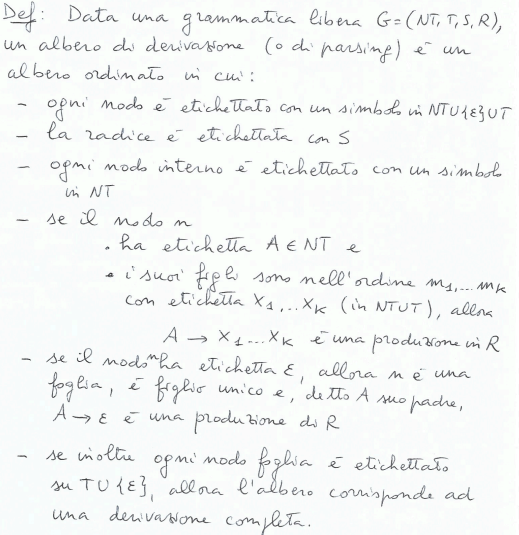 Def: Data una grammatica libera G=(NT,T,S,R),
un albero di derivazione (o di parsing) è un
albero ordinato in cui:
- ogni nodo è etichettato con un simbolo in NTU{ε}UT
- la radice è etichettata con S
- ogni nodo interno è etichettato con un simbolo
in NT
- se il nodo n
• ha etichetta A ∈ NT e
• i suoi figli sono nell'ordine m1,... mk
con etichetta X1,... Xk (in NTUT), allora
A → X1...Xk è una produzione in R
- se il nodo n ha etichetta ε, allora n è una
foglia, è figlio unico e, detto A suo padre,
A → ε è una produzione di R
- se inoltre ogni nodo foglia è etichettato
su TU{ε}, allora l'albero corrisponde ad
una derivazione completa.